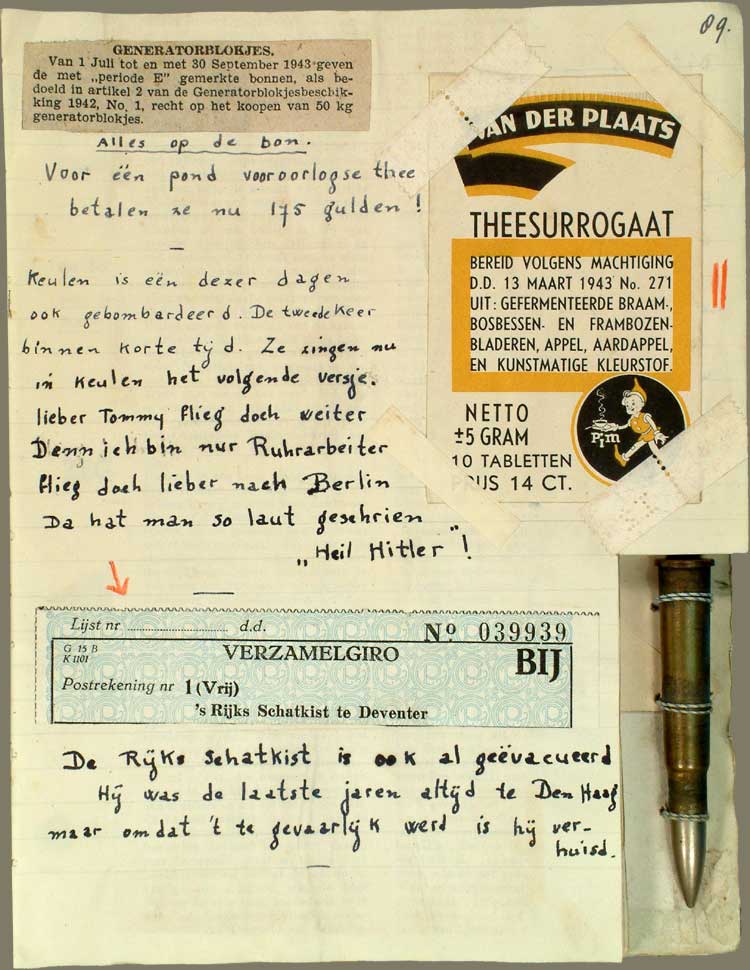 89.
GENERATORBLOKJES.
Van 1 Juli tot en met 30 September 1943 geven
de met „periode E” gemerkte bonnen, als be-
doeld in artikel 2 van de Generatorblokjesbeschik-
king 1942, No. 1, recht op het koopen van 50 kg
generatorblokjes.
Alles op de bon.
Voor één pond vooroorlogse thee
betalen ze nu 175 gulden!
Keulen is eën dezer dagen
ook gebombardeerd. De tweede keer
binnen korte tyd. Ze zingen nu
in Keulen het volgende versje.
lieber Tommy flieg doch weiter
Denn ich bin nur Ruhrarbeiter
flieg doch lieber nach Berlin
Da hat man so laut geschrien
„Heil Hitler”!
VAN DER PLAATS
THEESURROGAAT
BEREID VOLGENS MACHTIGING
D.D. 13 MAART 1943 No. 271
UIT: GEFERMENTEERDE BRAAM-,
BOSBESSEN- EN FRAMBOZEN-
BLADEREN, APPEL, AARDAPPEL,
EN KUNSTMATIGE KLEURSTOF.
NETTO
±5 GRAM
10 TABLETTEN
PRIJS 14 CT.
Pim
Lijst nr d.d. No 039939
G 15 B
K 1101
VERZAMELGIRO BIJ
Postrekening nr 1 (Vrij)
's Rijks Schatkist te Deventer
De Rijks Schatkist is ook al geëvacueerd
Hij was de laatste jaren altijd te Den Haag
maar omdat 't te gevaarlijk werd is hij ver-
huisd.